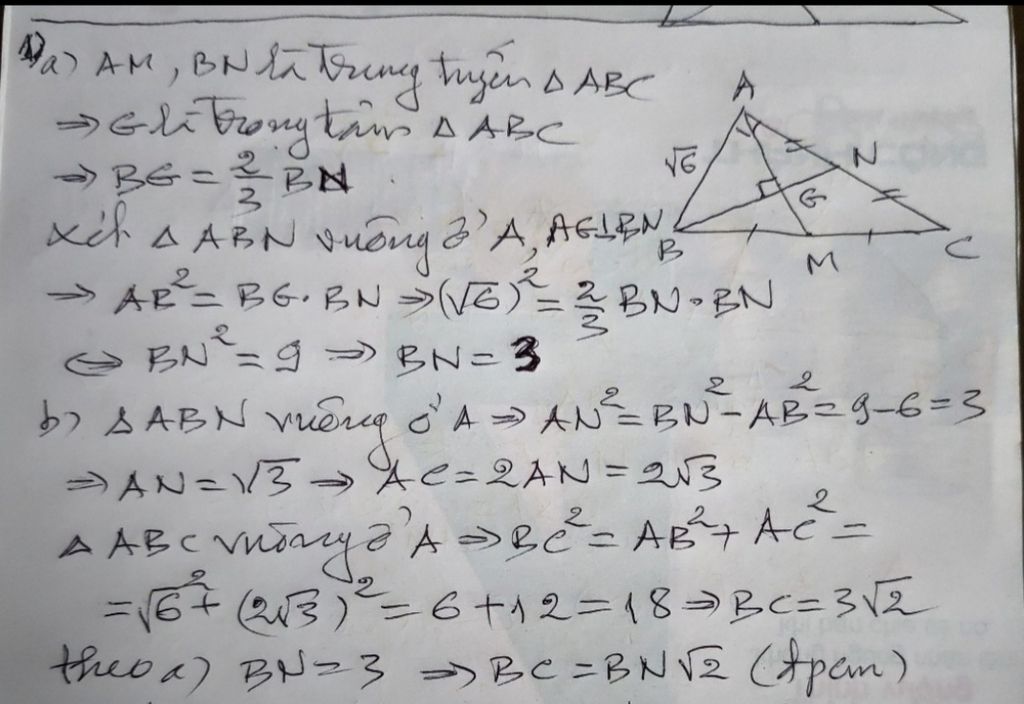 1) a) AM, BN là trung tuyến △ ABC
⇒ G là trọng tâm △ ABC
⇒ BG = 2/3 BN
Xét △ ABN vuông ở A, AG⊥BN
⇒ AB² = BG.BN ⇒ (√6)² = 2/3 BN.BN
⇔ BN² = 9 ⇒ BN = 3
b) △ ABN vuông ở A ⇒ AN² = BN² - AB² = 9 - 6 = 3
⇒ AN = √3 ⇒ AC = 2AN = 2√3
△ ABC vuông ở A ⇒ BC² = AB² + AC² =
= √6² + (2√3)² = 6 + 12 = 18 ⇒ BC = 3√2
theo a) BN = 3 ⇒ BC = BN√2 (đpcm)
A
√6
N
G
B
M
C